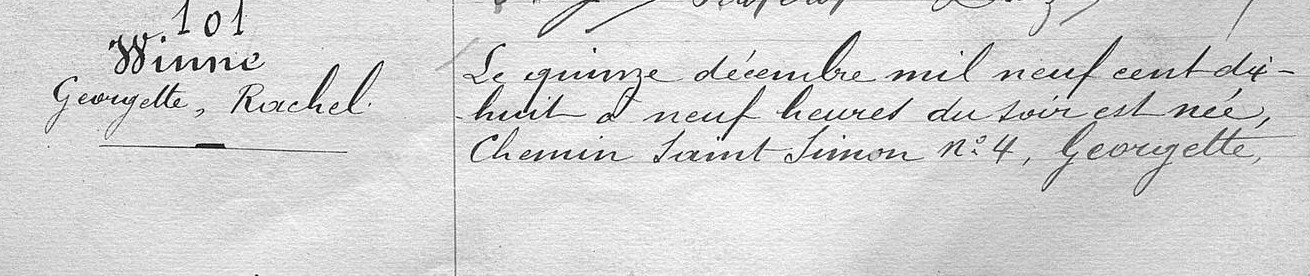 101
Winne
Georgette, Rachel.
Le quinze décembre mil neuf cent dix-
huit à neuf heures du soir est née,
Chemin Saint Simon nº 4, Georgette,